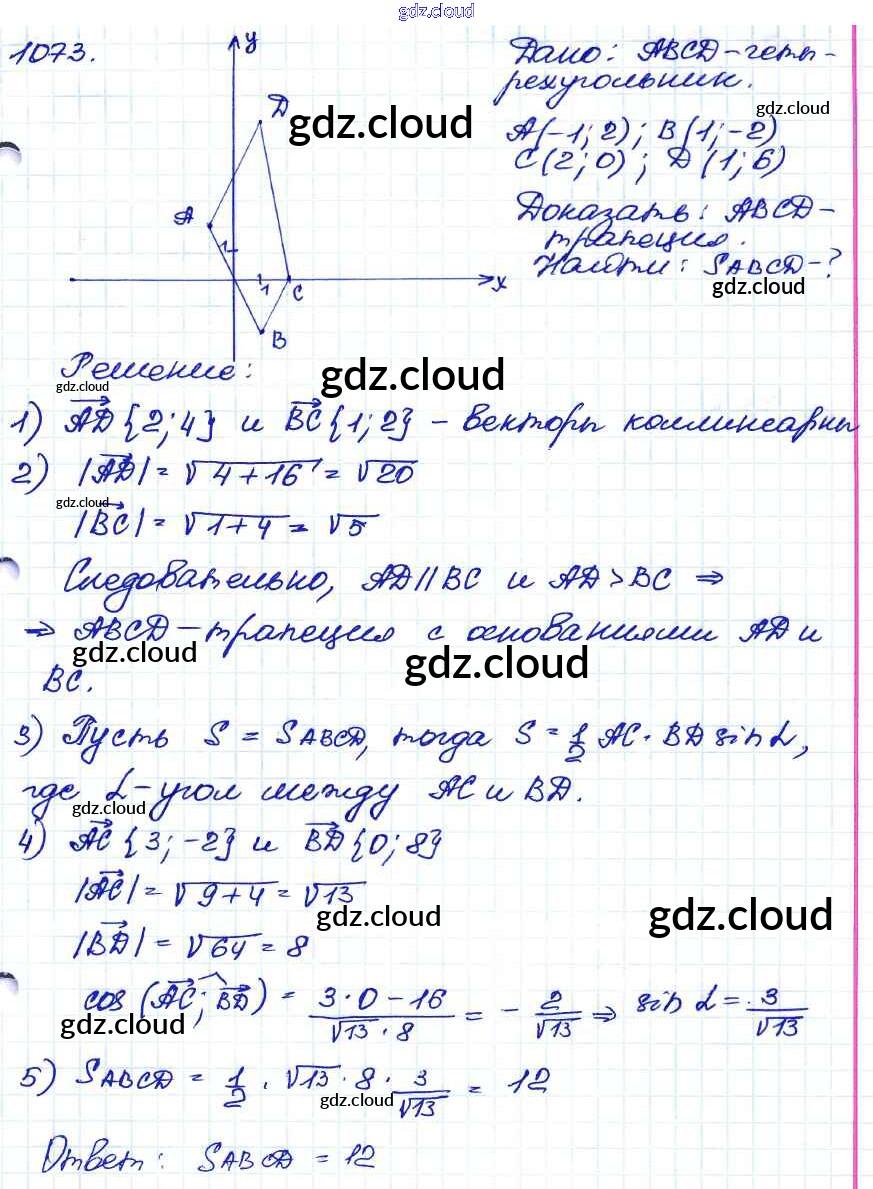 gdz.cloud
1073.
y
D
A
1
1
C
x
B
Дано: ABCD - четы-
рехугольник.
gdz.cloud
gdz.cloud
A(-1; 2); B(1; -2)
C(2; 0); D(1; 6)
Доказать: ABCD -
трапеция.
Найти: SABCD - ?
gdz.cloud
Решение:
gdz.cloud
gdz.cloud
1) AD {2; 4} и BC {1; 2} - векторы коллинеарны
2) |AD| = √4+16 = √20
gdz.cloud
|BC| = √1+4 = √5
Следовательно, AD || BC и AD > BC ⇒
⇒ ABCD - трапеция с основаниями AD и
gdz.cloud
gdz.cloud
BC.
3) Пусть S = SABCD, тогда S = 1/2 AC · BD sin α,
где α - угол между AC и BD.
gdz.cloud
4) AC {3; -2} и BD {0; 8}
|AC| = √9+4 = √13
gdz.cloud
gdz.cloud
|BD| = √64 = 8
cos (AC; BD) = 3·0-16 / √13 · 8 = - 2/√13 ⇒ sin α = 3/√13
gdz.cloud
5) SABCD = 1/2 · √13 · 8 · 3/√13 = 12
gdz.cloud
Ответ: SABCD = 12